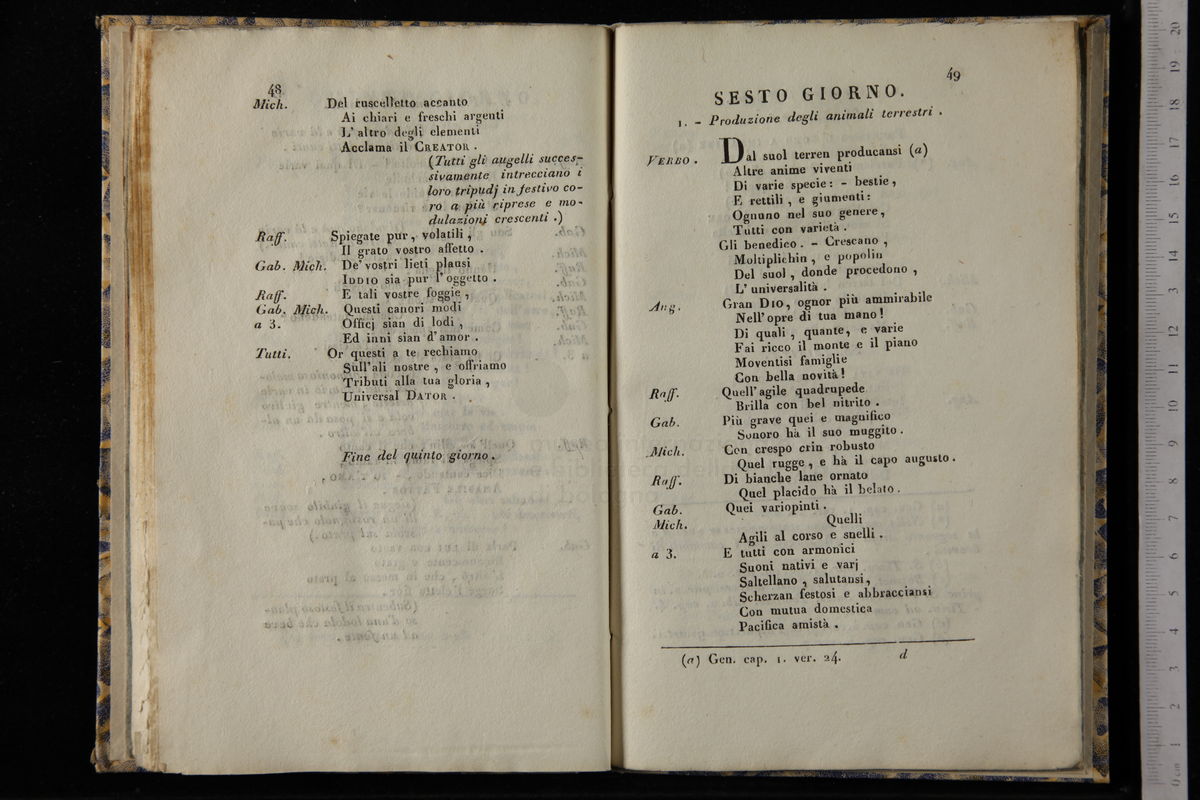 48
Mich. Del ruscelletto accanto
Ai chiari e freschi argenti
L' altro degli elementi
Acclama il CREATOR .
(Tutti gli augelli succes-
sivamente intrecciano i
loro tripudj in festivo co-
ro a più riprese e mo-
dulazioni crescenti .)
Raff. Spiegate pur, volatili ,
Il grato vostro affetto .
Gab. Mich. De' vostri lieti plausi
IDDIO sia pur l' oggetto .
Raff. E tali vostre foggie ,
Gab. Mich. Questi canori modi
a 3. Officj sian di lodi ,
Ed inni sian d'amor .
Tutti. Or questi a te rechiamo
Sull'ali nostre , e offriamo
Tributi alla tua gloria ,
Universal DATOR .
Fine del quinto giorno .
49
SESTO GIORNO.
1. - Produzione degli animali terrestri .
VERBO . Dal suol terren producansi (a)
Altre anime viventi
Di varie specie : - bestie ,
E rettili , e giumenti :
Ognuno nel suo genere ,
Tutti con varietà .
Gli benedico . - Crescano ,
Moltiplichin , e popolin
Del suol , donde procedono ,
L' universalità .
Ang. Gran DIO, ognor più ammirabile
Nell'opre di tua mano !
Di quali , quante, e varie
Fai ricco il monte e il piano
Moventisi famiglie
Con bella novità !
Raff. Quell'agile quadrupede
Brilla con bel nitrito .
Gab. Più grave quei e magnifico
Sonoro hà il suo muggito .
Mich. Con crespo crin robusto
Quel rugge , e hà il capo augusto .
Raff. Di bianche lane ornato
Quel placido hà il belato .
Gab. Quei variopinti .
Mich. Quelli
Agili al corso e snelli .
a 3. E tutti con armonici
Suoni nativi e varj
Saltellano , salutansi ,
Scherzan festosi e abbracciansi
Con mutua domestica
Pacifica amistà .
(a) Gen. cap. 1. ver. 24. d